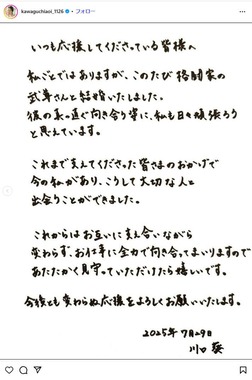 kawaguchiaoi_1126 • フォロー
いつも応援してくださっている皆様へ
私ごとではありますが、このたび格闘家の
武尊さんと結婚いたしました。
彼の真っ直ぐ向き合う姿に、私も日々頑張ろう
と思えています。
これまで支えてくださった皆さまのおかげで
今の私があり、こうして大切な人と
出会うことができました。
これからはお互いに支え合いながら
変わらず、お仕事に全力で向き合ってまいりますので
あたたかく見守っていただけたら嬉しいです。
今後とも変わらぬ応援をよろしくお願いいたします。
2025年7月29日
川口葵